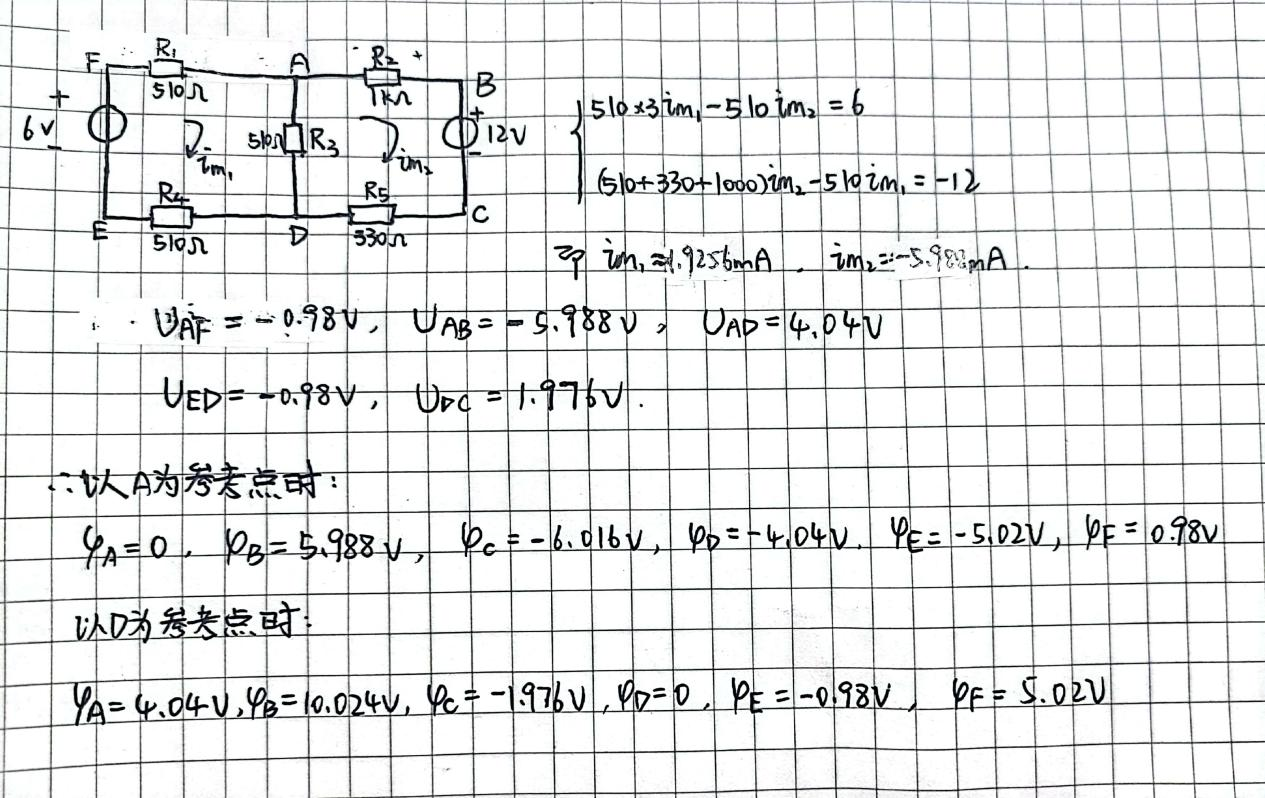 F R₁ A R₂ + B
510Ω 1kΩ
+ 6V - im₁ 510Ω R₃ im₂ + 12V -
R₄ R₅
E 510Ω D 330Ω C
510×3im₁-510im₂=6
(510+330+1000)im₂-510im₁=-12
im₁≈1.9256mA, im₂=-5.988mA.
U_AF=-0.98V, U_AB=-5.988V, U_AD=4.04V
U_ED=-0.98V, U_DC=1.976V.
∴以A为参考点时:
φ_A=0, φ_B=5.988V, φ_C=-6.016V, φ_D=-4.04V, φ_E=-5.02V, φ_F=0.98V
以D为参考点时:
φ_A=4.04V, φ_B=10.024V, φ_C=-1.976V, φ_D=0, φ_E=-0.98V, φ_F=5.02V